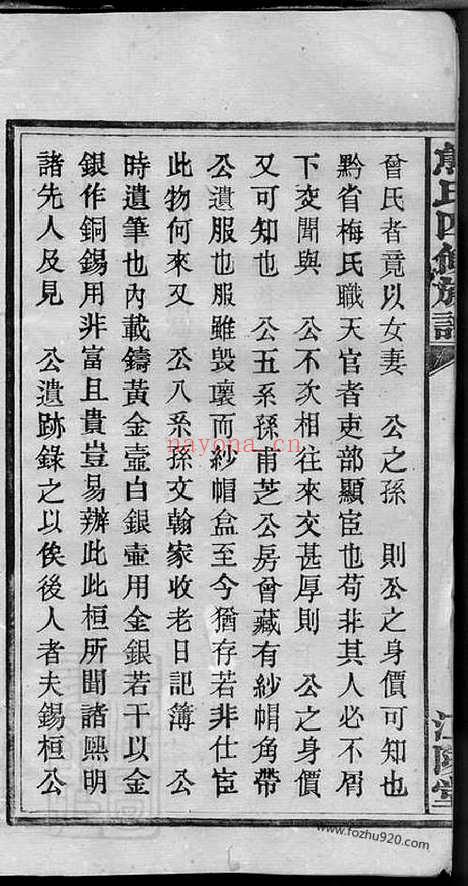 曾氏者竟以女妻　公之孫　則公之身價可知也
黔省梅氏職天官者吏部顯宦也苟非其人必不屑
下交聞與　公不次相往來交甚厚則　公之身價
又可知也　公五系孫甫芝公房曾藏有紗帽角帶
公遺服也服雖毀壞而紗帽盒至今猶存若非仕宦
此物何來又　公八系孫文翰家收老日記簿　公
時遺筆也內載鑄黃金壺白銀壺用金銀若干以金
銀作銅錫用非富且貴豈易辦此此桓所聞諸熙明
諸先人及見　公遺跡錄之以俟後人者夫錫桓公
氏四修族譜
江陵堂
nayona.cn
www.fozhu920.com